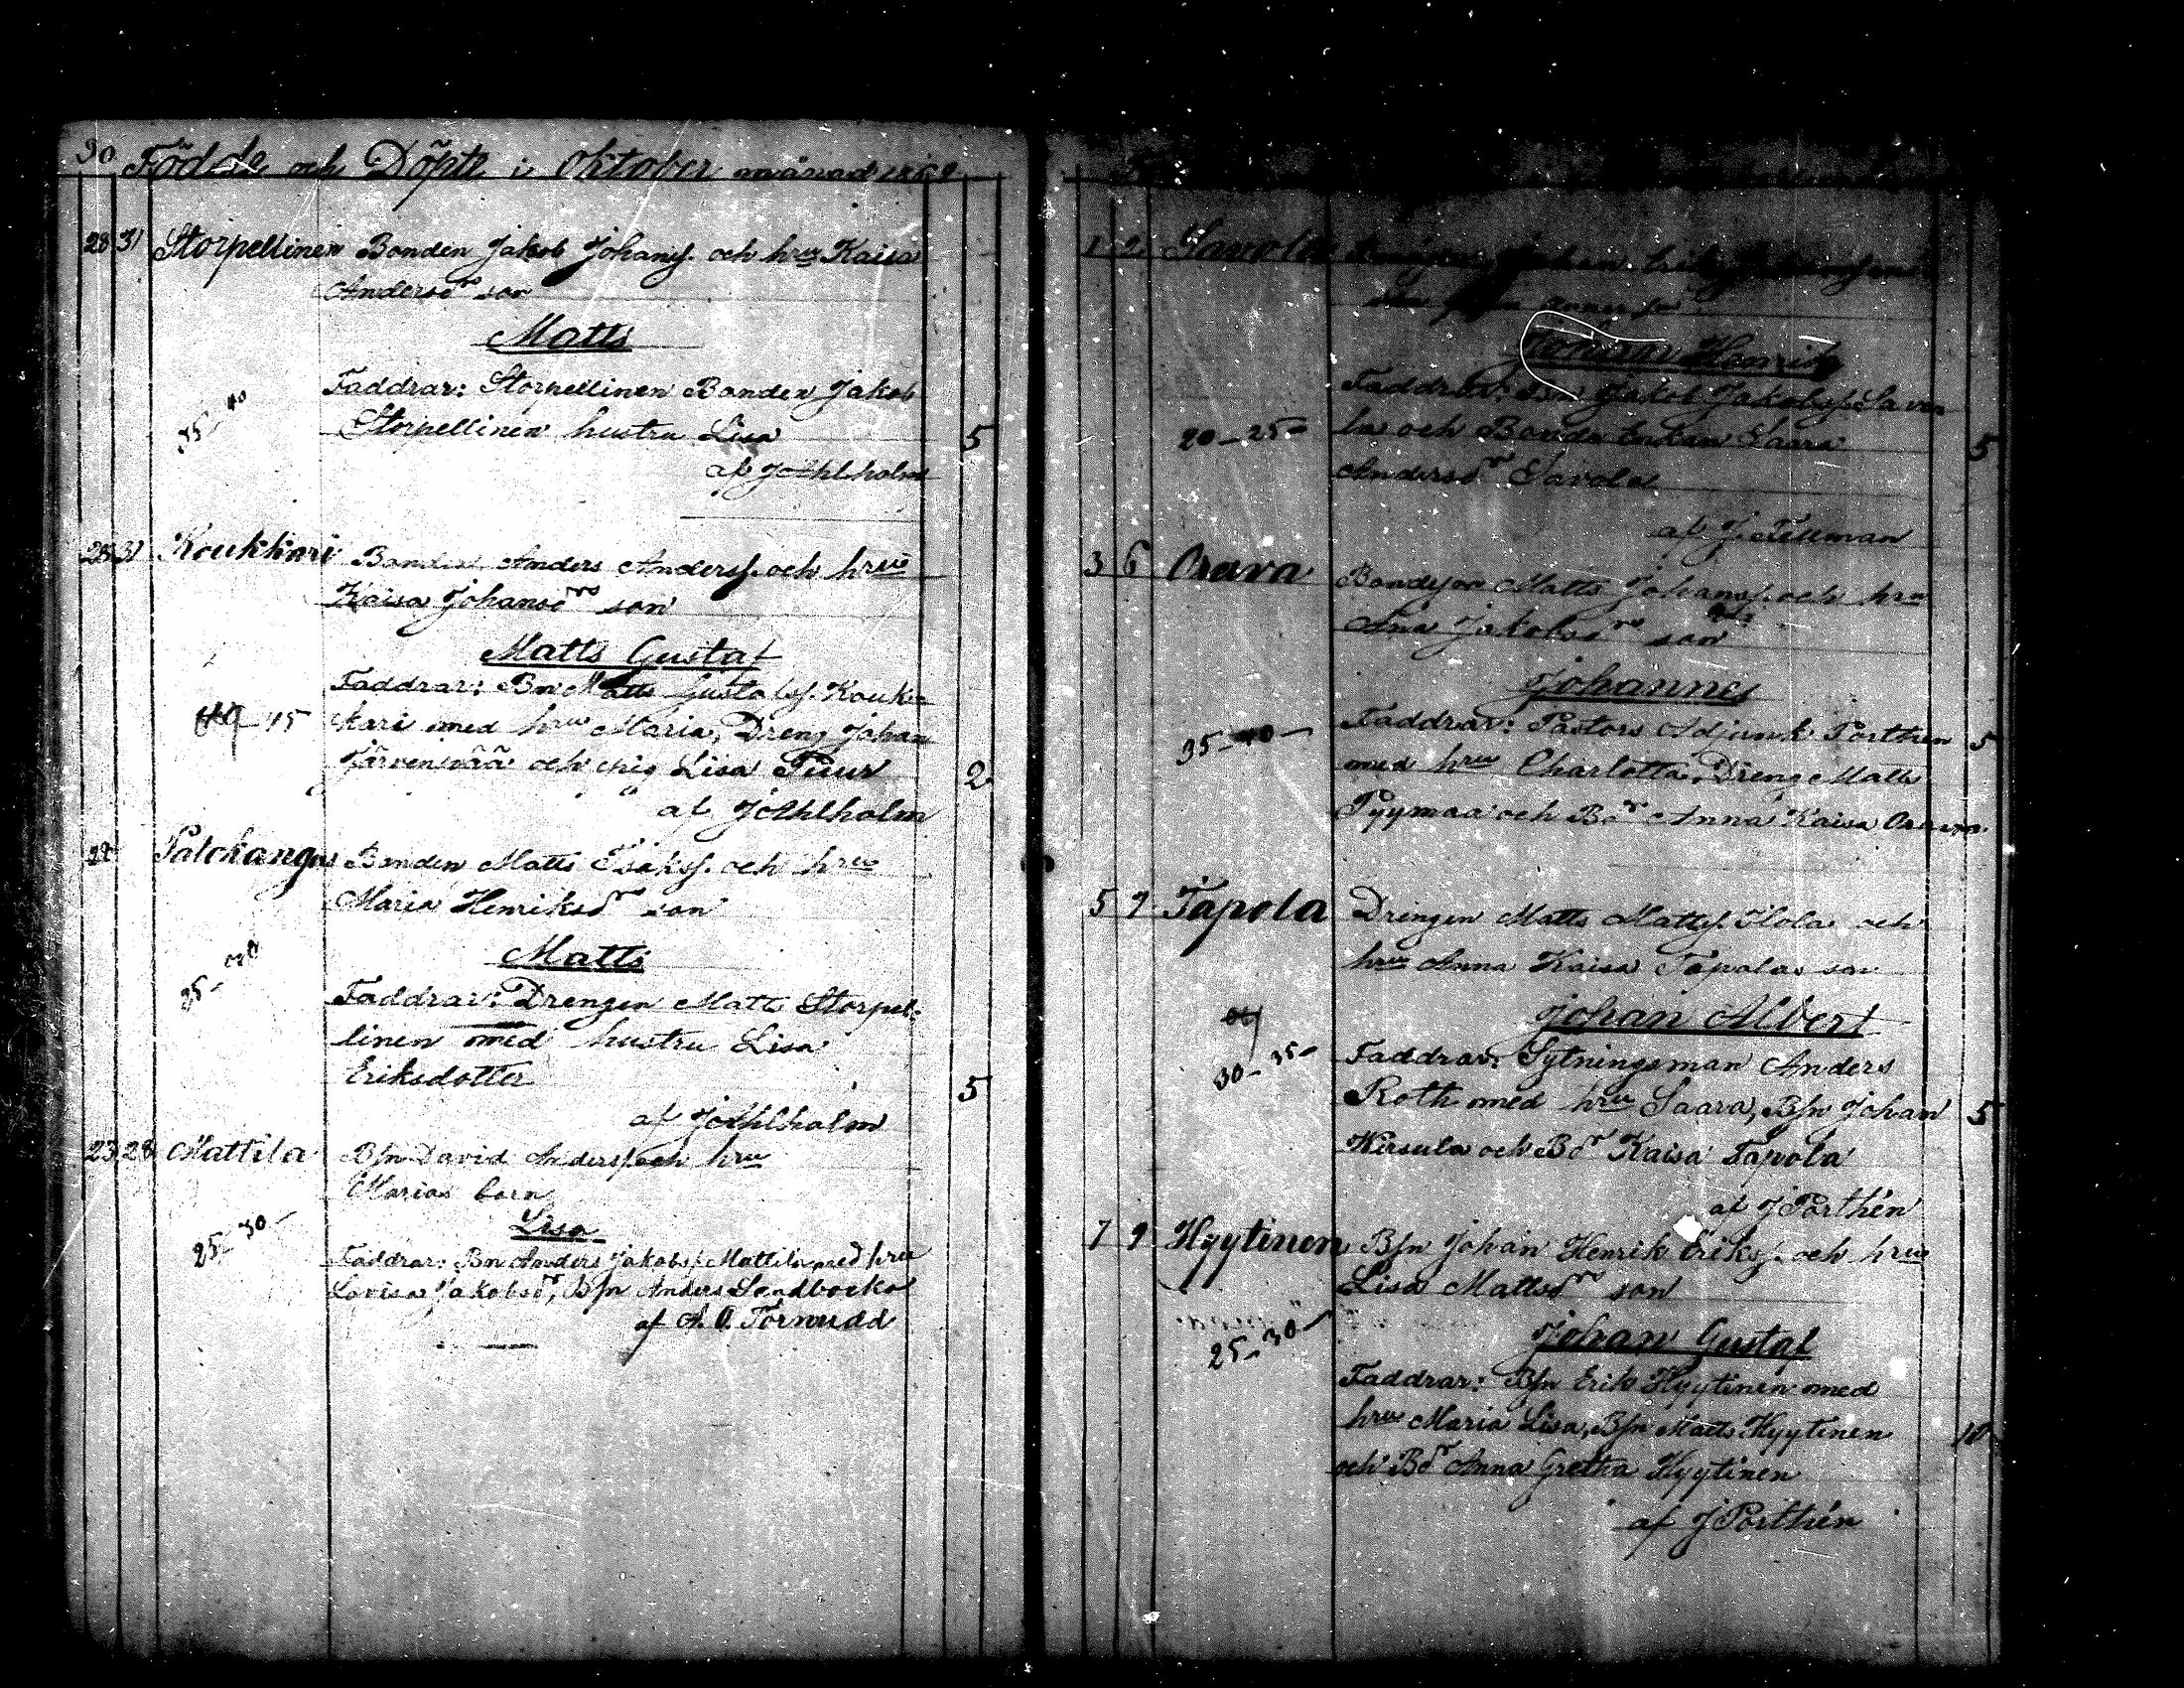 30 Födde och Döpte i Oktober månad
28 31 Storpellinen Bonden Jakob Johans. och hru Kaisa
Andersdr son
Matts
Faddrar: Storpellinen Bonden Jakob
35-40 Storpellinen hustru Lisa 5
af J Ahlholm
28 31 Koukkari Bonden Anders Anders. och hru
Kaisa Johansdr son
Matts Gustaf
Faddrar: Bn Matts Gustafs. Kouk-
45 kari med hru Maria, Dreng Johan
Järvenpää och pig Lisa Tuur 2
af J Ahlholm
28 Palokangas Bonden Matts Isaks. och hru
Maria Henriksdr son
Matts
25-30 Faddrar: Drengen Matts Storpel-
linen med hustru Lisa
Eriksdotter 5
af J Ahlholm
23 28 Mattila Bsn David Anders. och hru
Marias barn
Lisa
25-30- Faddrar: Bn Anders Jakobs. Mattila med hru
Lovisa Jakobsdr, Bsn Anders Sandbacka
af A. O. Törnudd
1 2 Savola Johan
Henrik
Faddrar: Jakob Jakobs. Savo
20-25- la och Bonde Enkan Saara 5
Andersdr Savola
af J. Fellman
3 6 Orava Bondeson Matts Johans. och hru
Ana Jakobsdr son
Johannes
Faddrar: Pastors Adjunk Porthen 5
35-40- med hru Charlotta, Dreng Matts
Pyymaa och Bdr Anna Kaisa Orava
5 9 Tapola Drengen Matts Matts. Ilola och
hru Anna Kaisa Tapola son
Johan Albert
30-35- Faddrar: Sytningsman Anders
Roth med hru Saara, Bsn Johan 5
Wirsula och Bdr Kaisa Tapola
af J Porthén
7 9 Hyytinen Bsn Johan Henrik Eriks. och hru
Lisa Mattsdr son
25-30- Johan Gustaf
Faddrar: Bsn Erik Hyytinen med
hru Maria Lisa, Bsn Matts Hyytinen 10
och Bdr Anna Gretha Hyytinen
af J Porthén